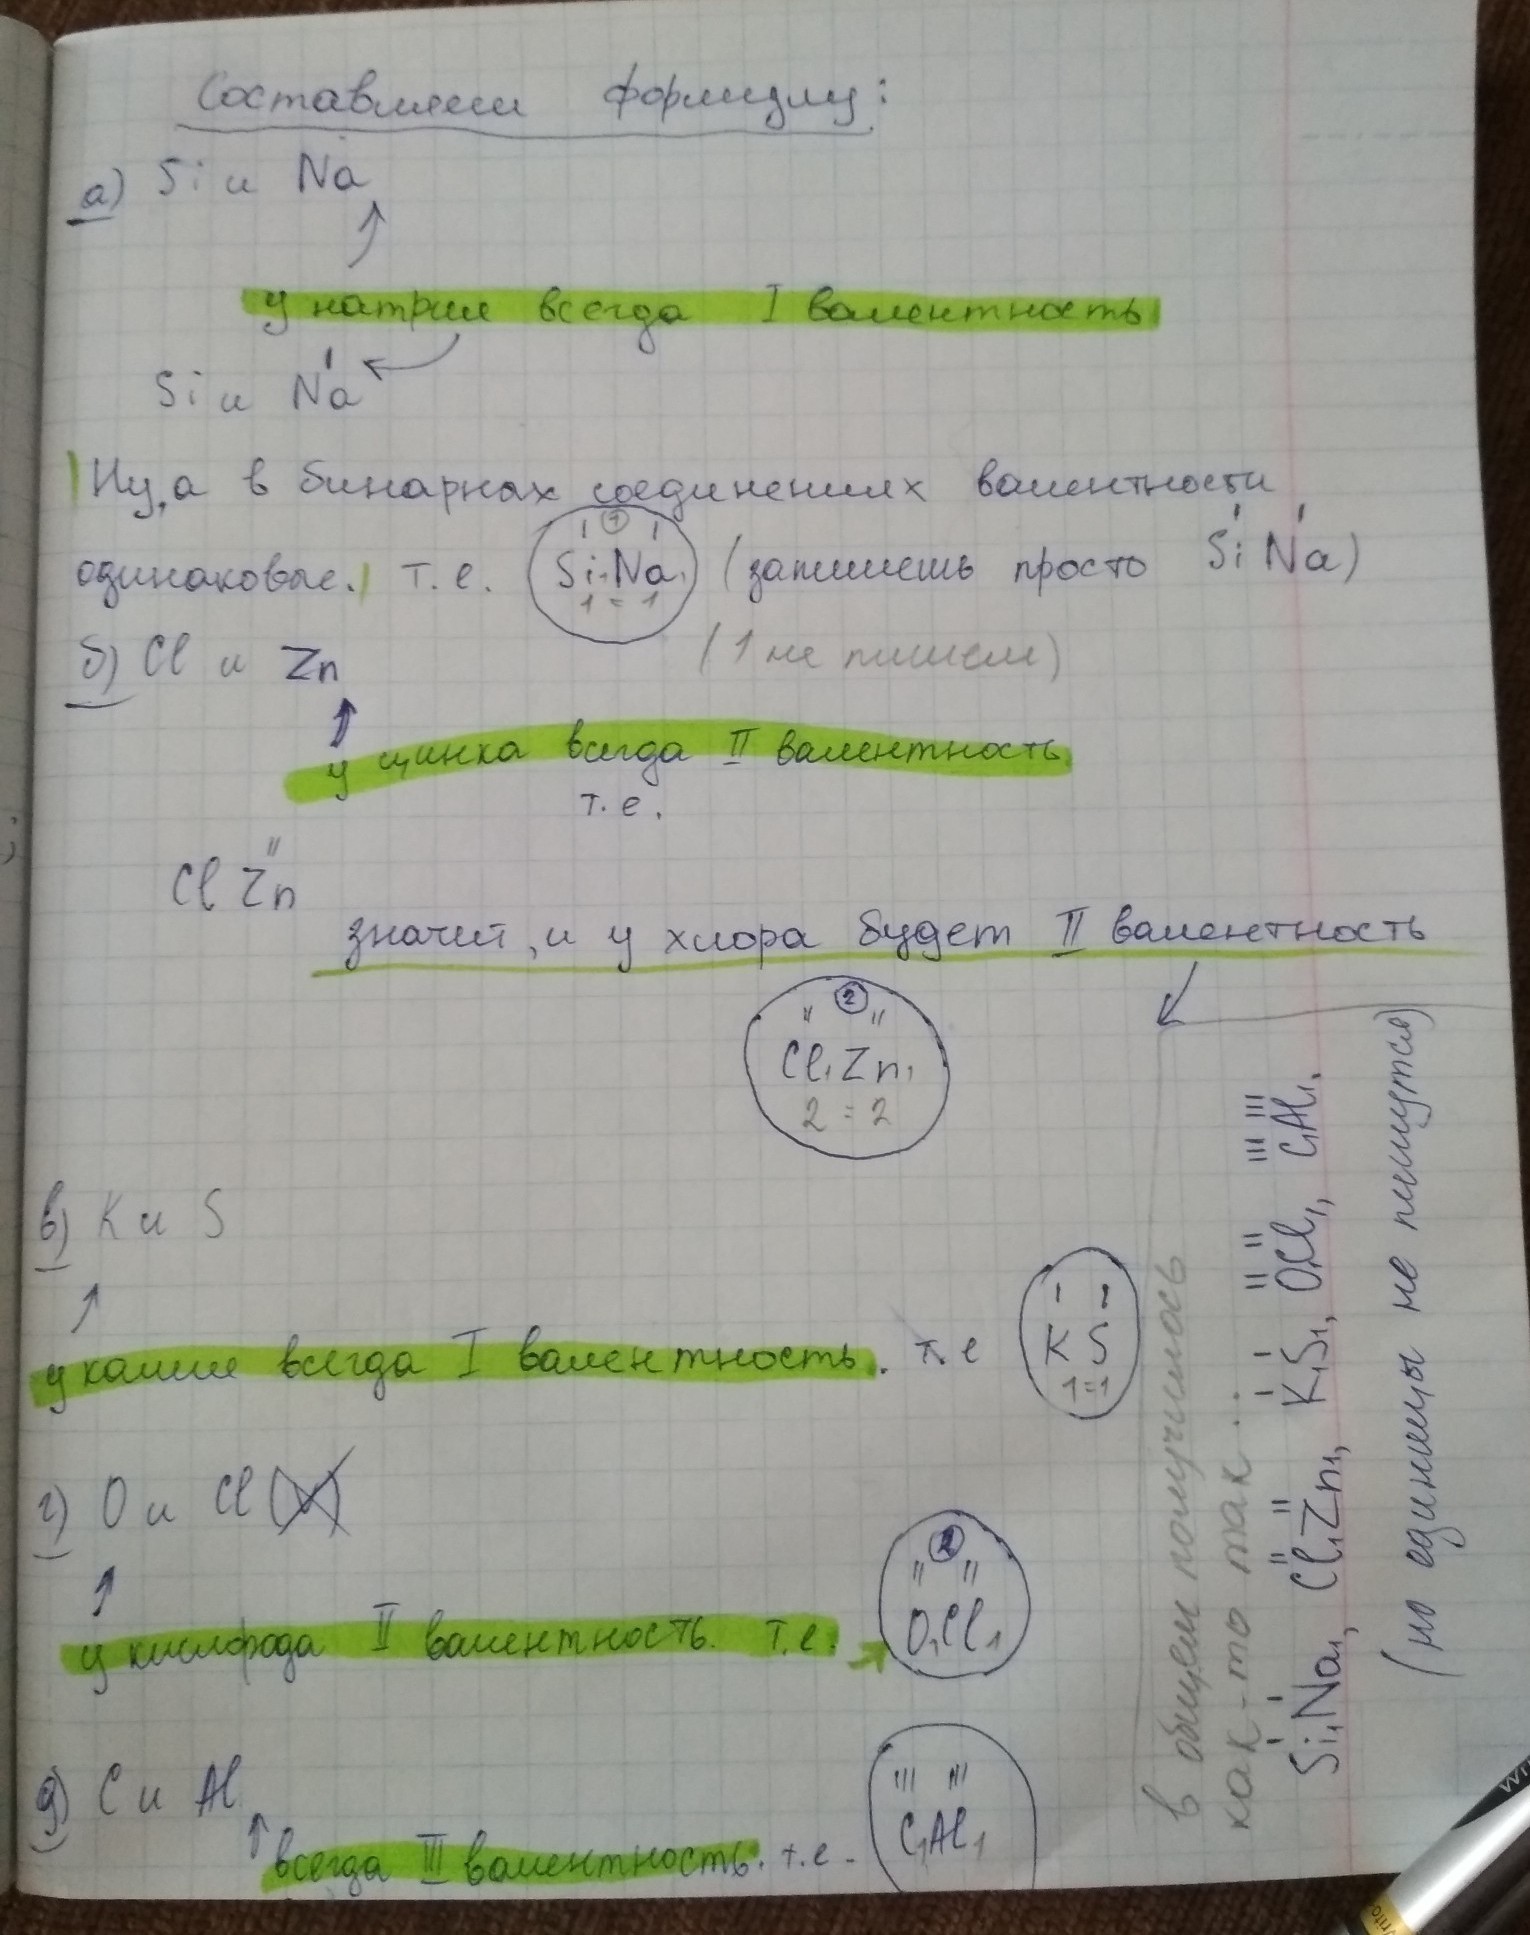 Составляем формулу:
а) Si и Na
у натрия всегда I валентность
Si и Na
I
Ну, а в бинарных соединениях валентности
одинаковые. т.е. Si₁Na₁ (запишешь просто SiNa)
I 1 I
I I
1 = 1
(1 не пишем)
б) Cl и Zn
у цинка всегда II валентность
т.е.
II
Cl Zn
значит, и у хлора будет II валентность
II 2 II
Cl₁Zn₁
2 = 2
в) K и S
у калия всегда I валентность. т.е
I I
K S
1=1
г) O и Cl
у кислорода II валентность. т.е.
II 2 II
O₁Cl₁
д) C и Al
всегда III валентность. т.е.
III III
C₁Al₁
в общем получилось
как-то так...
I I II II I I II II III III
Si₁Na₁, Cl₁Zn₁, K₁S₁, O₁Cl₁, C₁Al₁.
(но единицы не пишутся)